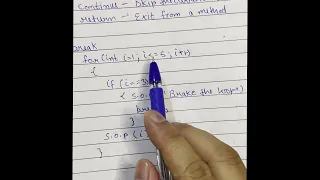 continue - Skip
return - Exit from a method
break
for(int i=1; i<=5; i++)
{
if (i==
{ s.o.p("Brake the loope
}
s.o.p (i
}